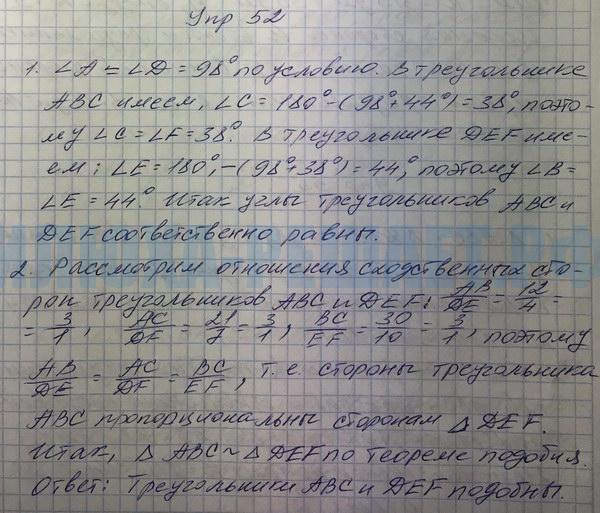 Упр 52
1. ∠A = ∠D = 98° по условию. В треугольнике
ABC имеем, ∠C = 180° - (98° + 44°) = 38°, поэто-
му ∠C = ∠F = 38°. В треугольнике DEF име-
ем: ∠E = 180° - (98° + 38°) = 44°, поэтому ∠B =
∠E = 44°. Итак углы треугольников ABC и
DEF соответственно равны.
2. Рассмотрим отношения сходственных сто-
рон треугольников ABC и DEF: AB/DE = 12/4 =
= 3/1, AC/DF = 21/7 = 3/1, BC/EF = 30/10 = 3/1, поэтому
AB/DE = AC/DF = BC/EF, т.е. стороны треугольника
ABC пропорциональны сторонам △ DEF.
Итак, △ ABC ~ △ DEF по теореме подобия.
Ответ: Треугольники ABC и DEF подобны.